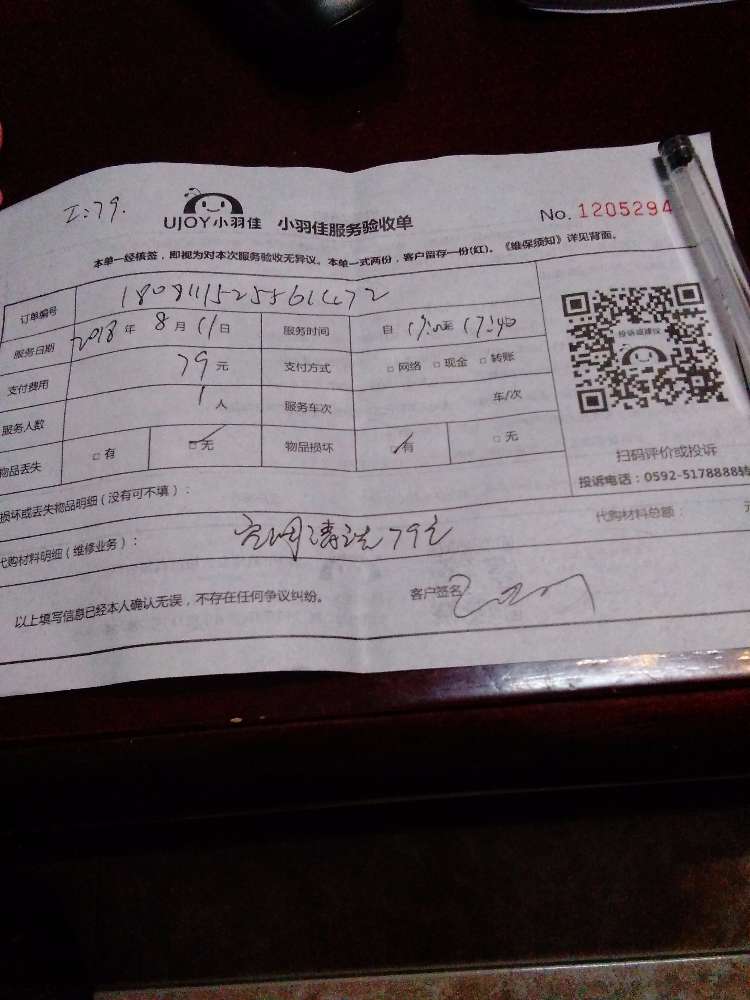 I:79.
UJOY小羽佳 小羽佳服务验收单
No. 1205294
本单一经核签，即视为对本次服务验收无异议。本单一式两份，客户留存一份(红)。《维保须知》详见背面。
订单编号
服务日期 2018 年 8 月 11 日 服务时间 自 17:00至 17:40
支付费用 79 元 支付方式 □ 网络 □ 现金 □ 转账
服务人数 1 人 服务车次 车/次
物品丢失 □ 有 □ 无 物品损坏 □ 有 □ 无
投诉或建议
扫码评价或投诉
投诉电话：0592-5178888转
损坏或丢失物品明细（没有可不填）：
代购材料明细（维修业务）： 空调清洗79元 代购材料总额： 元
以上填写信息已经本人确认无误，不存在任何争议纠纷。 客户签名